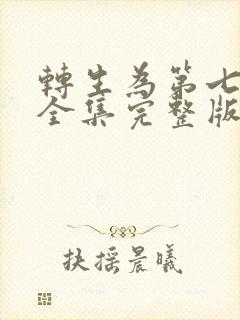 轉生為第七
全集完整版
扶摇晨曦